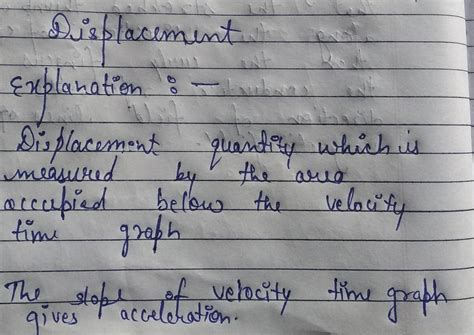 Displacement
Explanation :-
Displacement quantity which is
measured by the area
occcupied below the velocity
time graph
The slope of velocity time graph
gives acceleration.